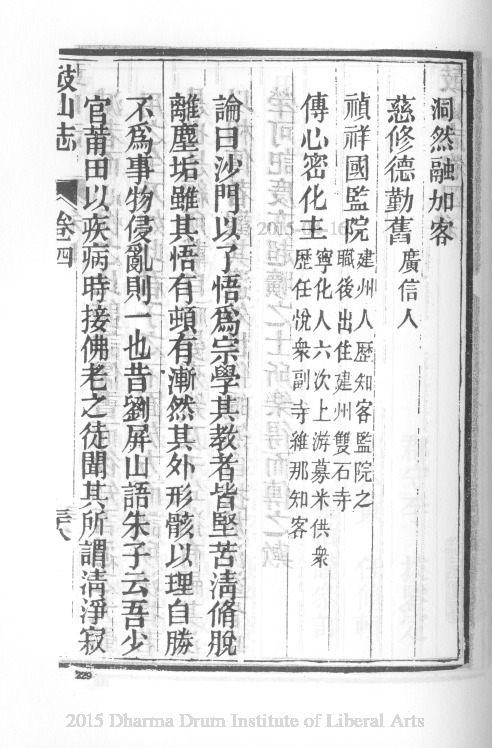 洞然融加客
慈修德勤舊廣信人
禎祥國監院建州人歷知客監院之職後出住建州雙石寺
傳心密化主寧化人六次上游募米供衆歷任悅衆副寺維那知客
論曰沙門以了悟爲宗學其教者皆堅苦淸脩脫
離塵垢雖其悟有頓有漸然其外形骸以理自勝
不爲事物侵亂則一也昔劉屏山語朱子云吾少
官莆田以疾病時接佛老之徒聞其所謂淸淨寂
鼓山志 卷四 三八
229
2015 Dharma Drum Institute of Liberal Arts